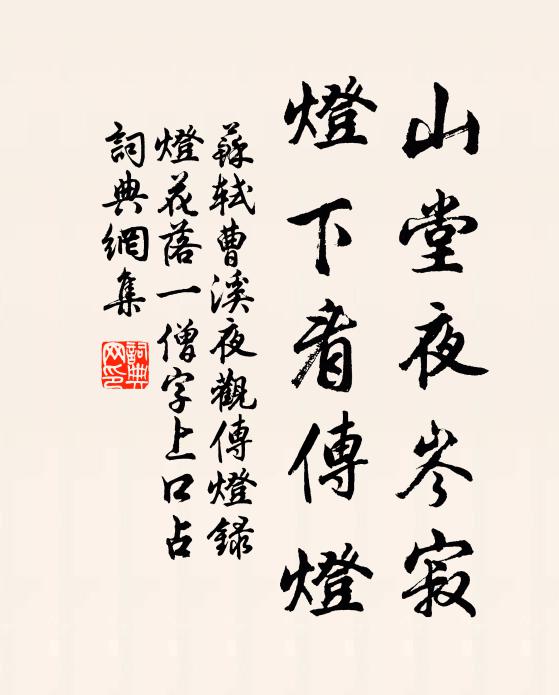 山堂夜岑寂
燈下看傳燈
蘇軾曹溪夜觀傳燈録
燈花落一僧字上口占
詞典網集
詞典網印